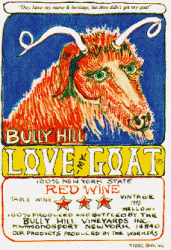 "They have my name & heritage, but they didn't get my goat"
BULLY HILL
LOVE MY GOAT ®
100% NEW YORK STATE
RED WINE
TABLE WINE
VINTAGE
MELLOW
100% PRODUCED AND BOTTLED BY THE
BULLY HILL VINEYARDS INC.
HAMMONDSPORT NEW YORK 14840
OUR PRODUCTS PRODUCED BY THE WORKERS